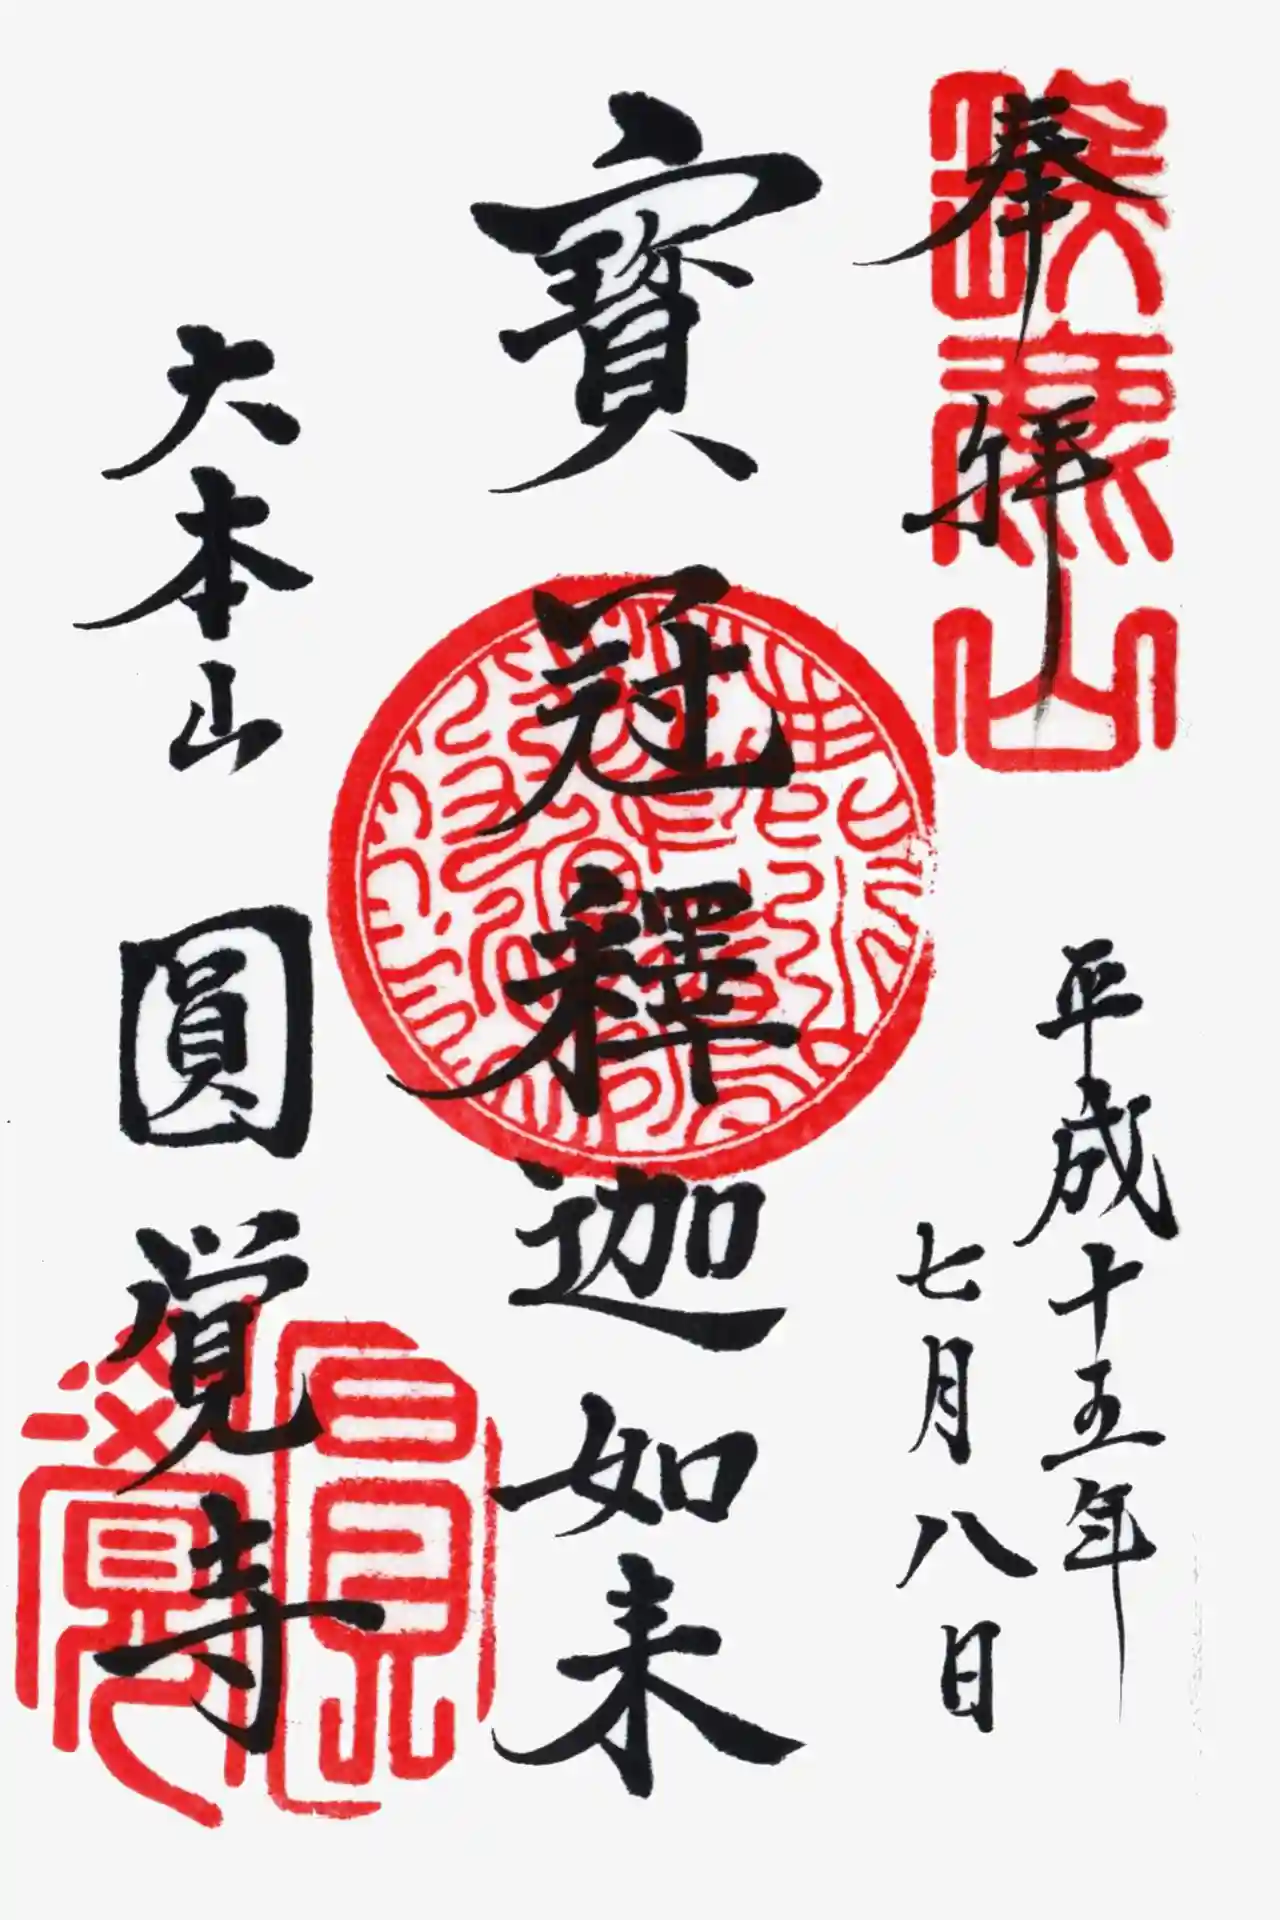 奉拝
平成十五年
七月八日
寶冠釋迦如来
大本山 圓覚寺
瑞鹿山
圓覺